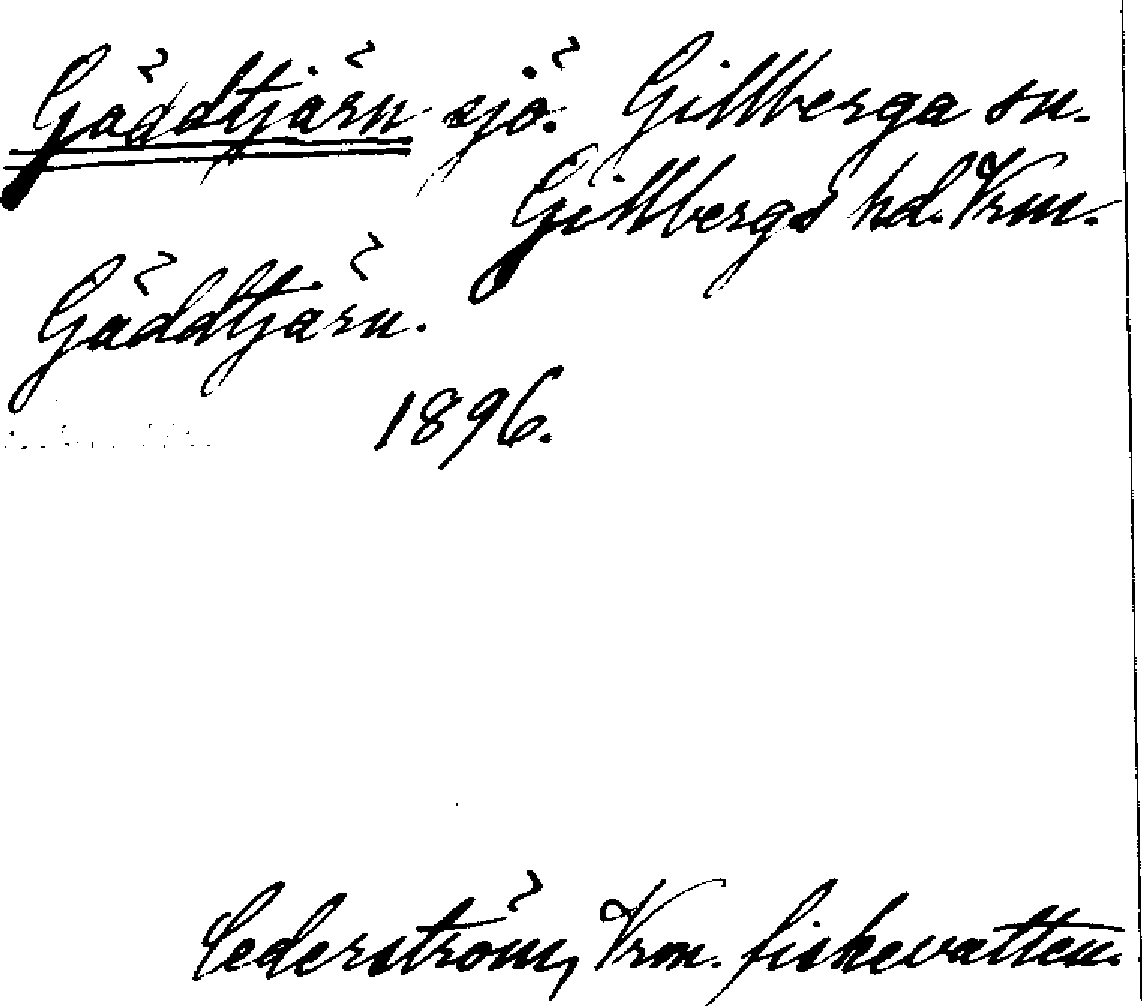 Gäddtjärn sjö. Gillberga sn.
Gillbergs hd. Vrm.
Gäddtjärn.
1896.
Cederström, Vrm. fiskevatten.